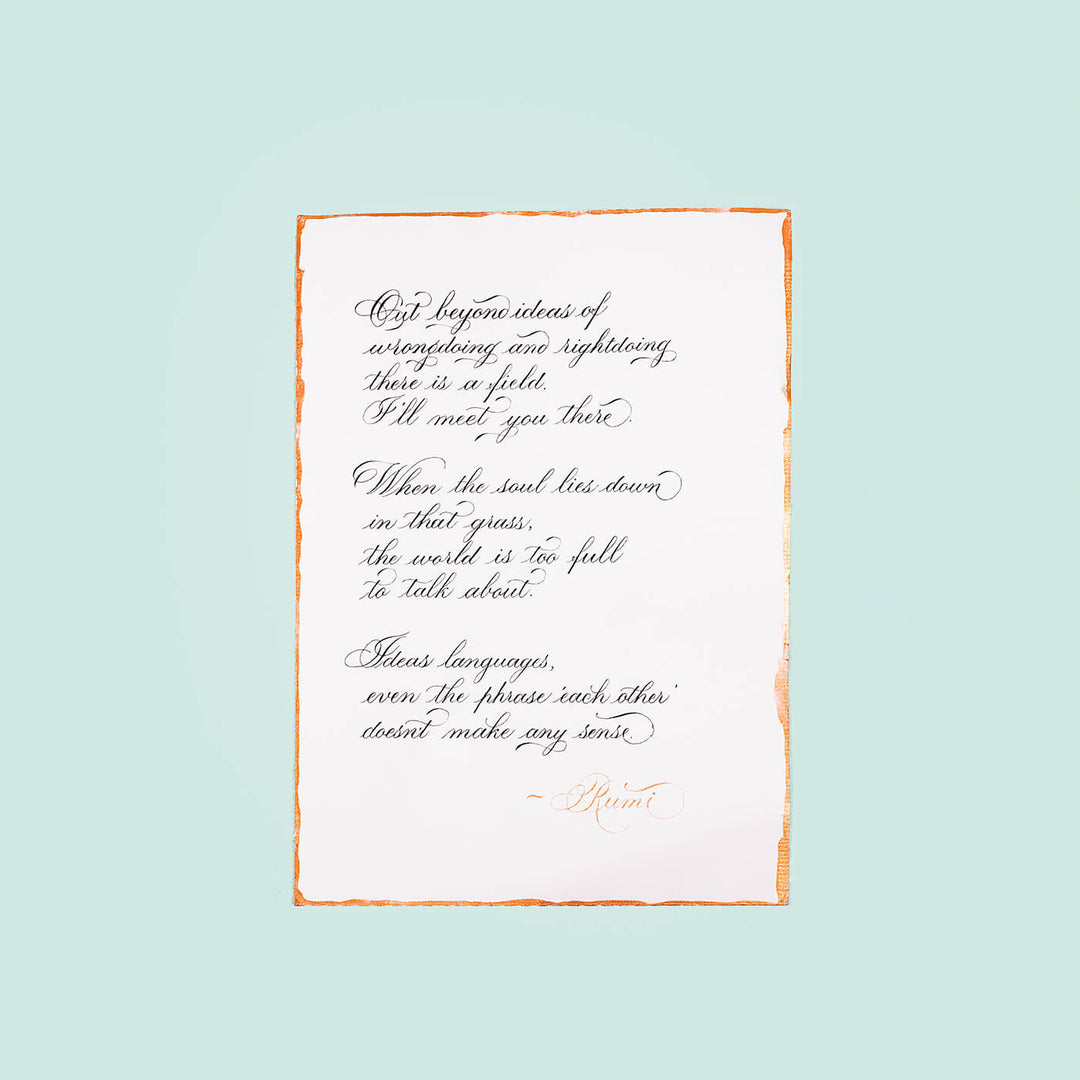 Out beyond ideas of
wrongdoing and rightdoing
there is a field.
I'll meet you there.
When the soul lies down
in that grass,
the world is too full
to talk about.
Ideas languages,
even the phrase 'each other'
doesn't make any sense.
~ Rumi